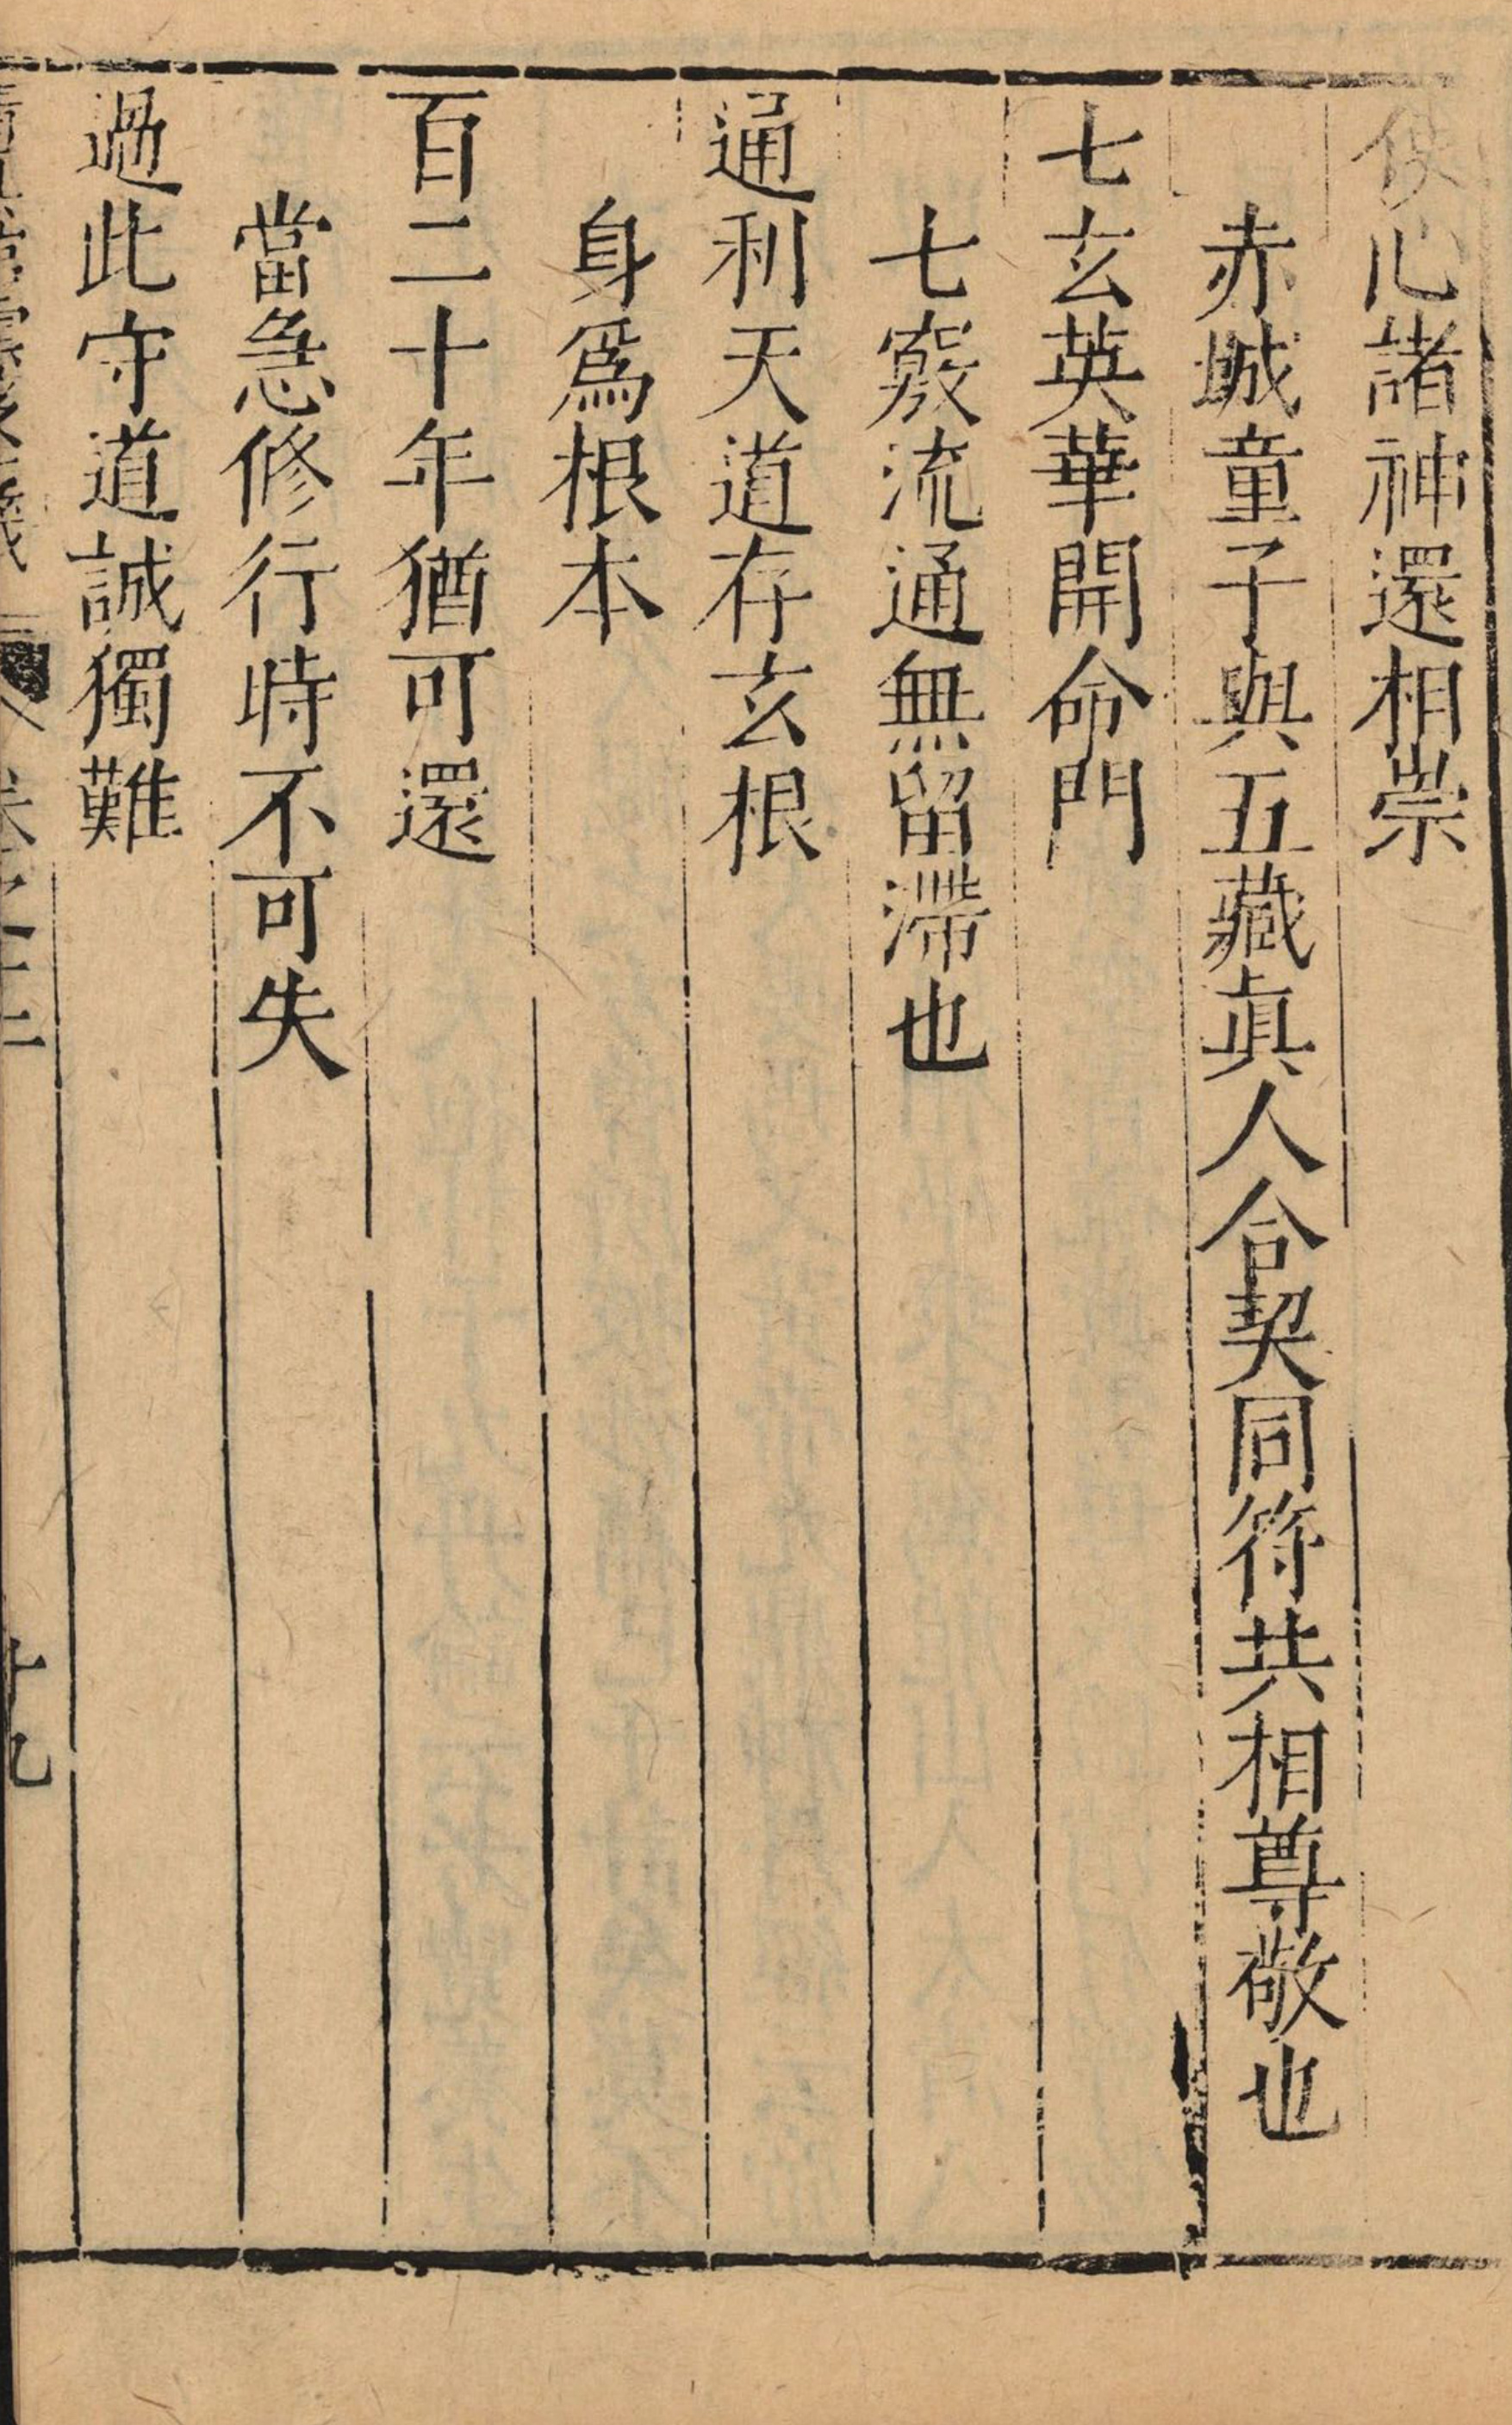 俠心諸神還相崇
赤城童子與五藏眞人合契同符共相尊敬也
七玄英華開命門
七竅流通無留滯也
通利天道存玄根
身爲根本
百二十年猶可還
當急修行時不可失
過此守道誠獨難
卷之十二
十九